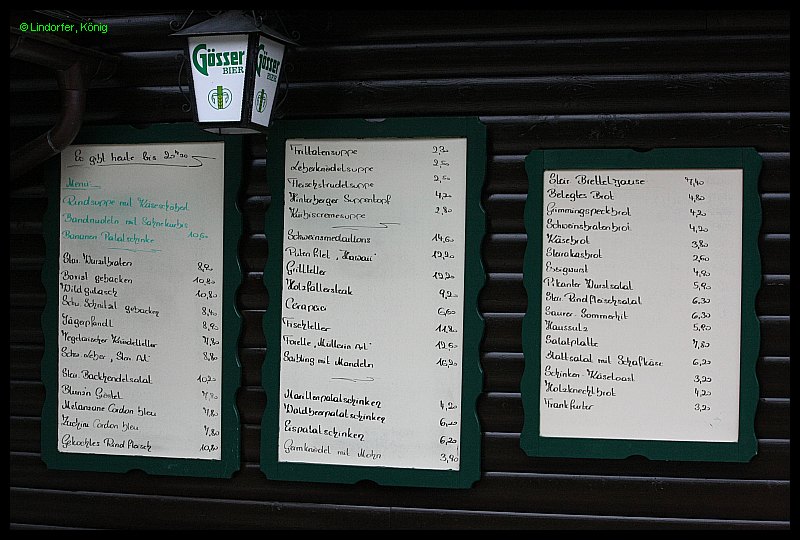 © Lindorfer, König
Gösser
BIER
Gösser
BIER
Es gibt heute bis
Menü:
Rindsuppe mit
Bandnudeln mit
Bananen Palatschinke 10,60
Ster. Wurzlbraten 8,90
gebacken 10,80
Wildgulasch 10,80
Schw. Schnitzel gebacken 8,40
Jägerpfandl 8,90
Vegetarischer 7,80
Schw. Leber, Stm. Art" 8,80
Ster. Backhendlsalat 10,20
7,80
Melanzane Cordon bleu 7,80
Zuchini Cordon bleu 7,80
Gekochtes Rindfleisch 10,80
Frittatensuppe 2,20
Leberknödelsuppe 2,50
Fleischstrudelsuppe 2,50
Hinterberger Suppentopf 4,20
Kürbiscremesuppe 2,80
Schweinsmedaillons 14,60
Puten Filet "Hawaii" 12,20
Grillteller 12,20
Holzfällersteak 9,20
6,60
Fischteller 11,80
Forelle "Müllerin Art" 12,60
Saibling mit Mandeln 16,20
Marillenpalatschinken 4,20
Waldbeerpalatschinken 6,20
Eispalatschinken 6,20
Germknödel mit Mohn 3,90
Steir. Brettljause 7,40
Belegtes Brot 4,80
Gimmingspeckbrot 4,20
Schweinsbratenbrot 4,20
Käsebrot 3,80
2,60
Essigwurst 4,90
Pikanter Wurstsalat 5,90
Steir. Rindfleischsalat 6,30
Saurer-Sommerhit 6,30
Haussulz 5,90
Salatplatte 7,80
Blattsalat mit Schafkäse 6,20
Schinken-Käsetoast 3,20
Holzknechtbrot 4,20
Frankfurter 3,20